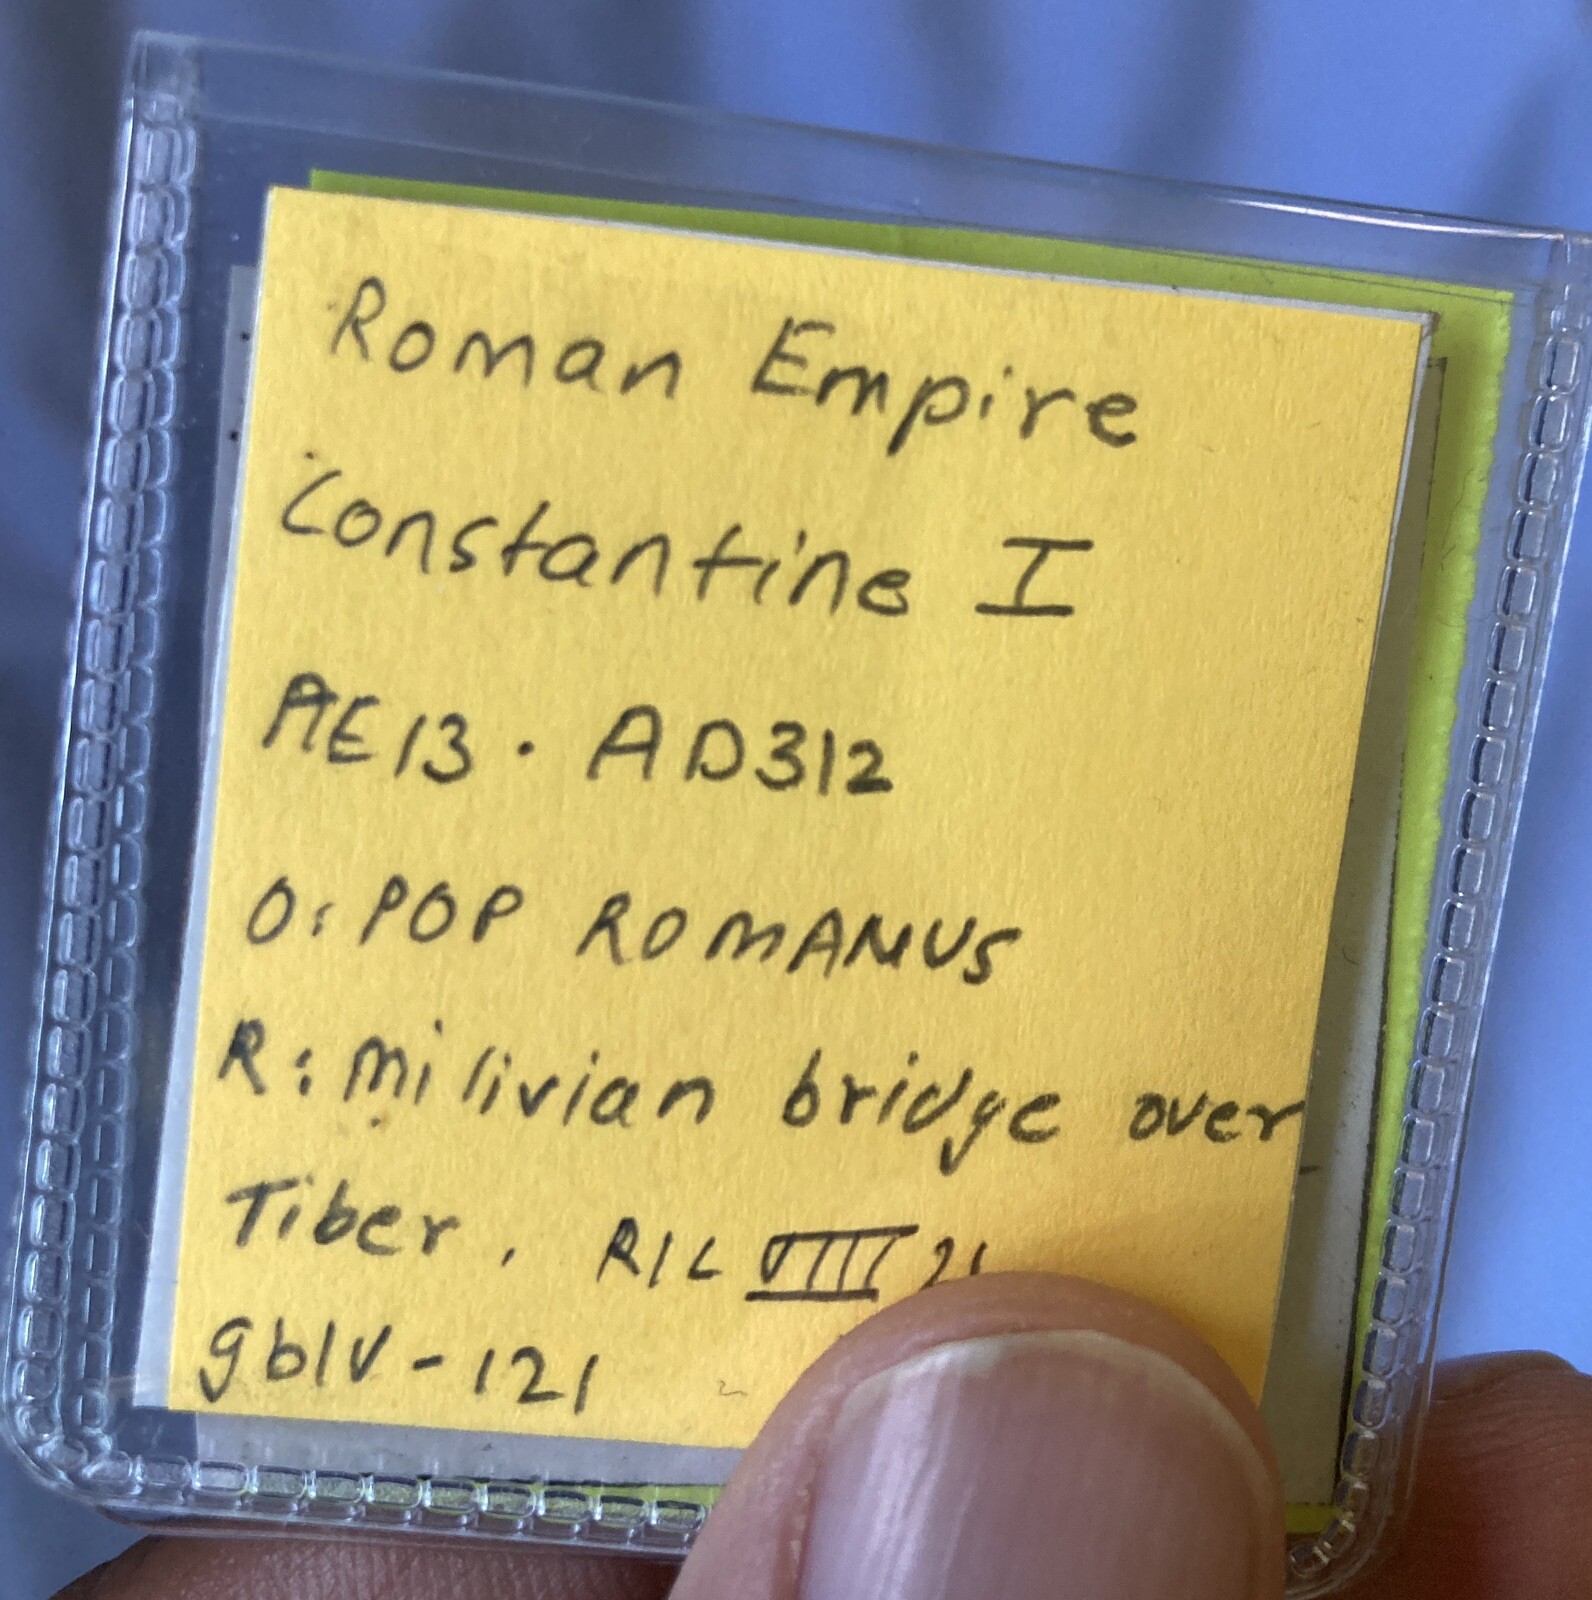 Roman Empire
Constantine I
AE13 . AD312
O: POP ROMANUS
R: Milivian bridge over
Tiber. RIC VIII 21
gblv-121